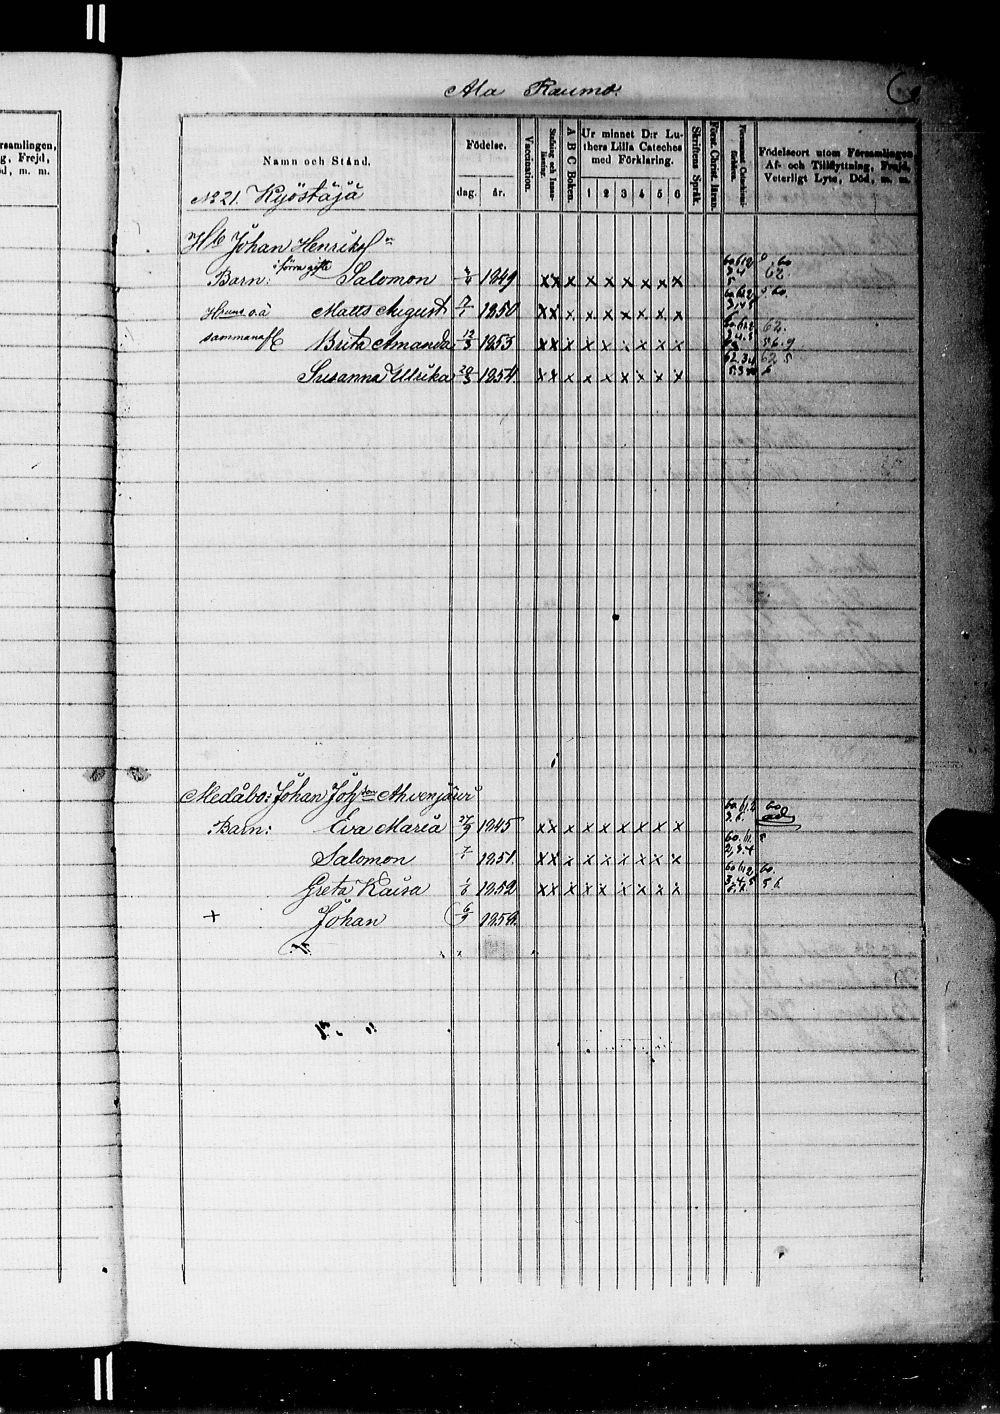 Ala Raumo.
rsamlingen,
g, Frejd,
d, m. m.
Namn och Stånd.
Födelse.
dag. år.
Vaccination.
Stafning och Innanläsning.
A B C Boken.
Ur minnet D:r Luthers Lilla Cateches med Förklaring.
1 2 3 4 5 6
Skriftens Språk.
Födelseort utom Församlingen
Af- och Tillflyttning, Frejd,
Veterligt Lyte, Död, m. m.
No 21. Kyöstäjä
Johan Henriks
Barn: i förra gifte Salomon 1849 x x x x x x x x x 62.
Matts August 7/1 1850 x x x x x x x x x
Brita Amanda 12/3 1853 x x x x x x x x x 62.
Susanna Ulrika 20/3 1854 x x x x x x x x x
Medåbo: Johan Joh:son Ahvenjärvi
Barn: Eva Maria 27/9 1845 x x x x x x x x x 60
Salomon 7/1 1851. x x x x x x x x x
Greta Kaisa 1852 x x x x x x x x x 60.
+ Johan 6/9